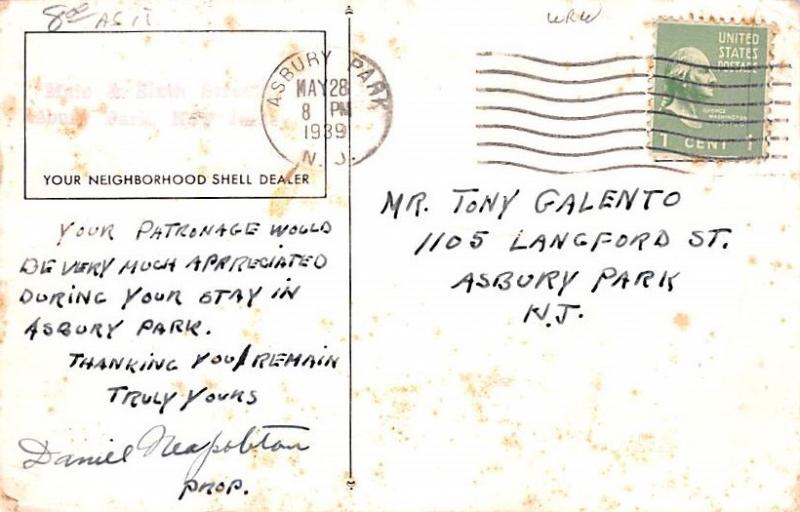 8.00 AS IS
WRW
& Sixth Street
Park, New
YOUR NEIGHBORHOOD SHELL DEALER
ASBURY PARK
MAY 28
8 PM
1939
N. J.
UNITED
STATES
POSTAGE
GEORGE
WASHINGTON
1 CENT 1
YOUR PATRONAGE WOULD
BE VERY MUCH APPRECIATED
DURING YOUR STAY IN
ASBURY PARK.
THANKING YOU I REMAIN
TRULY YOURS
Daniel Napolitan
PROP.
MR. TONY GALENTO
1105 LANGFORD ST.
ASBURY PARK
N.J.